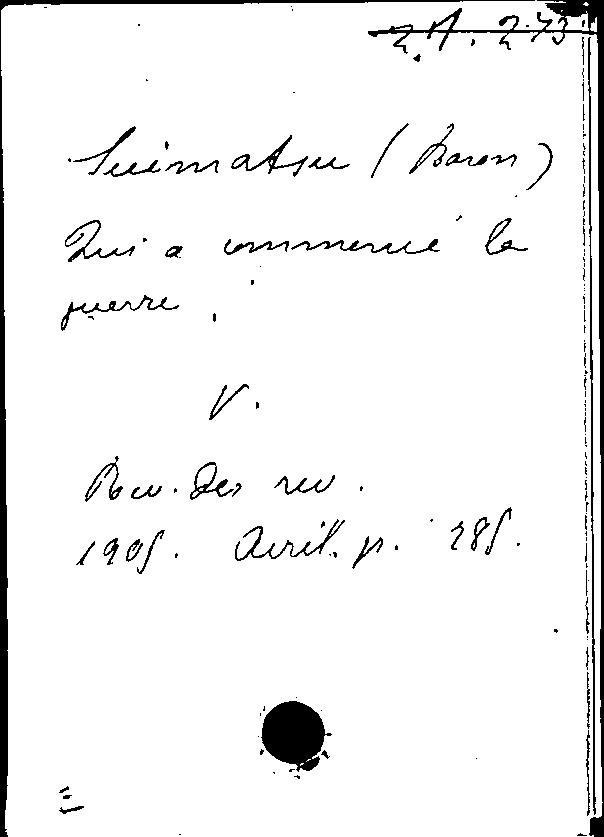 Suimatsu (Baron)
Qui a commencé la
guerre.
V.
Rev. des rev.
1905. Avril. p. 285.